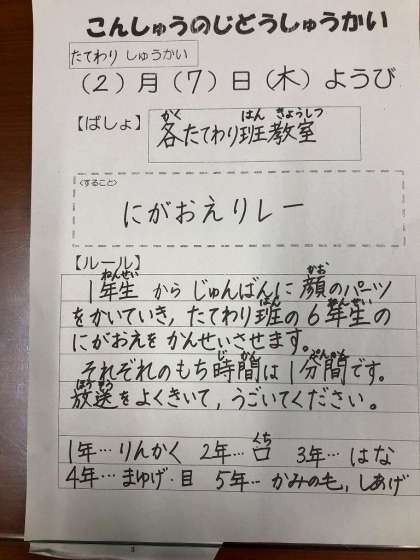 こんしゅうのじどうしゅうかい
たてわり しゅうかい
（2）月（7）日（木）ようび
【ばしょ】 各たてわり班教室
<すること>
にがおえリレー
【ルール】
1年生 から じゅんばんに 顔のパーツ
をかいていき，たてわり班の6年生の
にがおえを かんせいさせます。
それぞれのもち時間は1分間です。
放送をよくきいて，うごいてください。
1年…りんかく 2年…口 3年…はな
4年…まゆげ・目 5年…かみの毛，しあげ